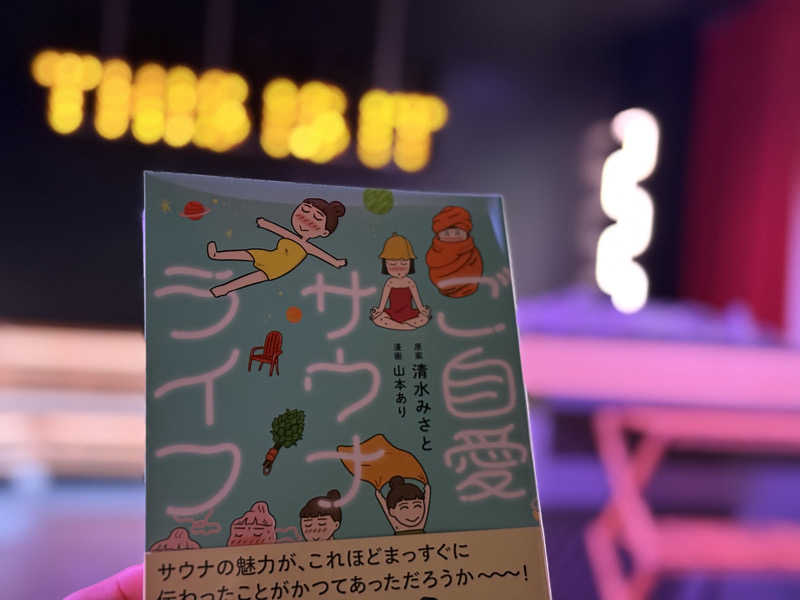 THIS IS IT
ご自愛
サウナ
ライフ
原案 清水みさと
漫画 山本あり
サウナの魅力が、これほどまっすぐに
伝わったことがかつてあっただろうか〜〜〜!